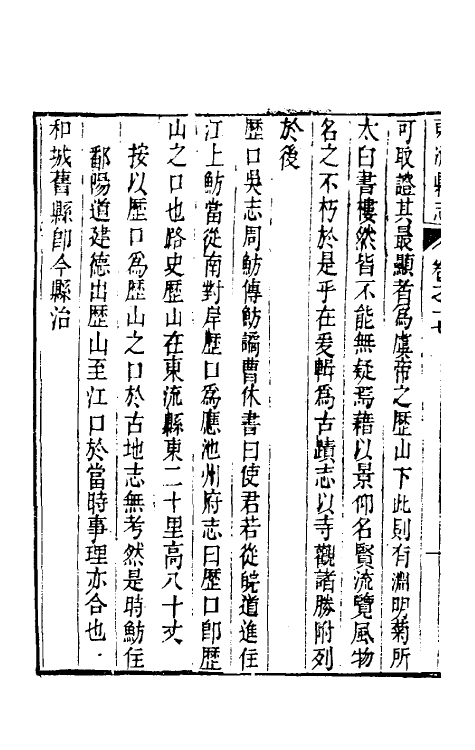 東流縣志
卷之十
可取證其最顯者為虞帝之歷山下此則有淵明菊所
太白書樓然皆不能無疑焉藉以景仰名賢流覽風物
名之不朽於是乎在爰輯為古蹟志以寺觀諸勝附列
於後
歷口吳志周魴傳魴譎曹休書曰使君若從皖道進住
江上魴當從南對岸歷口為應池州府志曰歷口卽歷
山之口也路史歷山在東流縣東二十里高八十丈
按以歷口為歷山之口於古地志無考然是時魴住
鄱陽道建德出歷山至江口於當時事理亦合也
和城舊縣卽今縣治